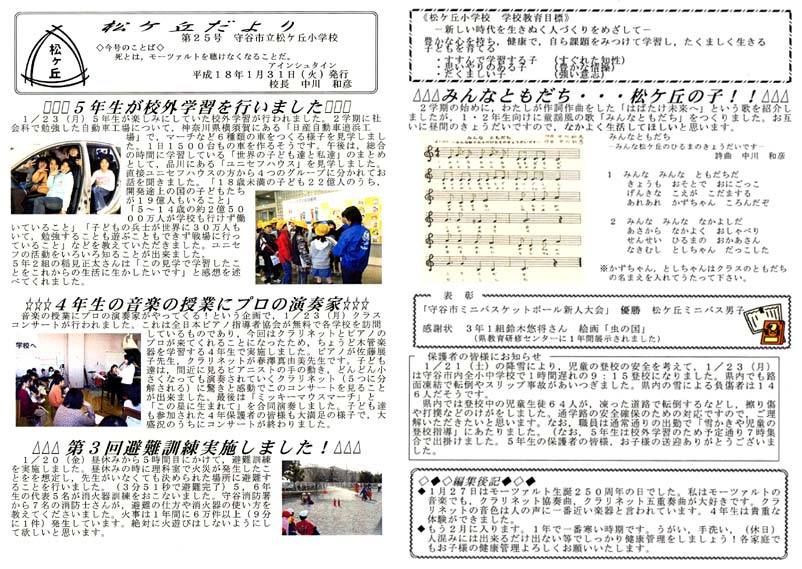 松ケ丘だより
第25号 守谷市立松ケ丘小学校
◇今号のことば◇
死とは、モーツァルトを聴けなくなることだ。
アインシュタイン
平成18年1月31日(火)発行
校長 中川 和彦
松ヶ丘
5年生が校外学習を行いました
1/23(月)5年生が楽しみにしていた校外学習が行われました。2学期に社
会科で勉強した自動車工場について、神奈川県横須賀にある「日産自動車追浜工
場」で、マーチなど6種類の車をつくる様子を見学しまし
た。1日1500台もの車を作るそうです。午後は、総合
の時間に学習している「世界の子ども達と私達」のまとめ
として、品川にある「ユニセフハウス」を見学しました。
直接ユニセフハウスの方から4つのグループに分かれてお
話を聞きました。「18歳未満の子ども22億人のうち、
開発途上の国の子どもたち
が19億人もいること」
「5～14歳の約2億50
00万人が学校も行けず働
いていること」「子どもの兵士が世界に30万人も
いて、勉強することも遊ぶこともできず戦場に行っ
ていること」などを教えていただきました。ユニセ
フの活動をいろいろ知ることが出来ました。
5年2組の稲見正太さんは「この見学で学習したこ
とをこれからの生活に生かしたいです」と感想を述
べてくれました。
☆☆☆4年生の音楽の授業にプロの演奏家☆☆☆
音楽の授業にプロの演奏家がやってくる!という企画で、1/23(月)クラス
コンサートが行われました。これは全日本ピアノ指導者協会が無料で各学校を訪問
しているものであり、今回はクラリネットとピアノの
プロが来てくれることになったため、ちょうど木管楽
器を学習する4年生で実施しました。ピアノが佐藤展
子先生、クラリネットが春澤真由美先生です。子ども
達は、間近に見るピアニストの手の動き、どんどん小
さくなっても演奏されていくクラリネット(5つに分
解される)に驚きと感動でこのコンサートを見ること
が出来ました。最後は「ミッキーマウスマーチ」と
「この星に生まれて」を合同演奏しました。子ども達
も参加された4年保護者の皆様も大満足の様子で、大
盛況のうちにコンサートが終わりました。
学校へ
第3回避難訓練実施しました!
1/20(金)昼休みから5時間目にかけて、避難訓練
を実施しました。昼休みの時に理科室で火災が発生したこ
とをを想定し、先生がいなくても決められた場所に避難す
ることを行いました。(3分51秒で避難完了)5、6年
生の代表5名が消火器訓練をおこないました。守谷消防署
から7名の消防士さんが、避難の仕方や消火器の使い方を
教えてくださいました。火事は1年間に6万件以上(9分
に1件)発生しています。絶対に火遊びはしないようにし
て欲しいと思います。
《松ケ丘小学校 学校教育目標》
―新しい時代を生きぬく人づくりをめざして―
豊かな心を持ち、健康で、自ら課題をみつけて学習し、たくましく生きる
子どもを育てる
・すすんで学習する子 (すぐれた知性)
・思いやりのある子 (豊かな情操)
・たくましい子 (強い意志)
みんなともだち・・・松ケ丘の子!!
2学期の始めに、わたしが作詞作曲をした「はばたけ未来へ」という歌を紹介し
ましたが、1・2年生向けに童謡風の歌「みんなともだち」をつくりました。お互
いに昼間のきょうだいですので、なかよく生活してほしいと思います。
みんなともだち
―みんな松ケ丘のひるまのきょうだいです―
詩曲 中川 和彦
1 みんな みんな ともだちだ
きょうも おそとで おにごっこ
げんきな こえが こだまする
あれあれ かずちゃん ころんだぞ
2 みんな みんな なかよしだ
あさから なかよく おしゃべり
せんせい ひるまの おかあさん
なきむし としちゃん だっこした
※かずちゃん、としちゃんはクラスのともだち
の名まえを入れてうたって下さい。
表 彰
「守谷市ミニバスケットボール新人大会」 優勝 松ケ丘ミニバス男子
感謝状 3年1組鈴木悠将さん 絵画「虫の国」
(県教育研修センターに1年間展示されました)
保護者の皆様にお知らせ
1/21(土)の降雪により、児童の登校の安全を考えて、1/23(月)
は守谷市内全小中学校で1時間遅れの9:15登校となりました。県内でも路
面凍結で転倒やスリップ事故があいつぎました。県内の雪による負傷者は14
6人だそうです。
県内では登校中の児童生徒64人が、凍った道路で転倒するなどし、擦り傷
や打撲などのけがをしました。通学路の安全確保のための対応ですので、ご理
解いただきたいと思います。なお、職員は通常通りの出勤で「雪かきや児童の
登校指導」にあたりました。(なお、5年生は校外学習のため予定通り7時集
合で出掛けました。5年生の保護者の皆様、お子様の送迎ありがとうございま
した。
◇◆◇◆編集後記◆◇◆◇
◆1月27日はモーツァルト生誕250周年の日でした。私はモーツァルトの
音楽でも、クラリネット協奏曲、クラリネット五重奏曲が大好きです。クラリ
ネットの音色は人の声に一番近い楽器と言われています。4年生は貴重な
体験ができました。
◆もう2月に入ります。1年で一番寒い時期です。うがい、手洗い、(休日)
人混みには出来るだけ出ない等でしっかり健康管理をしましょう!各家庭で
もお子様の健康管理よろしくお願いいたします。